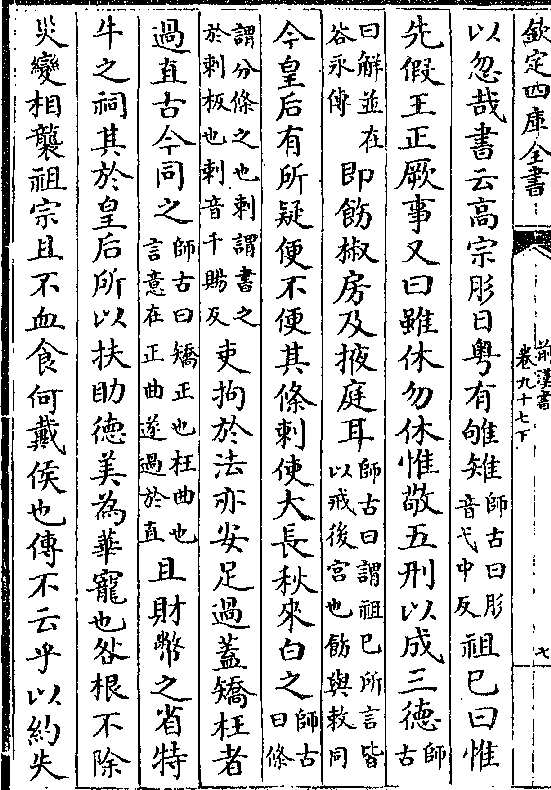 欽定四庫全書
前漢書
卷九十七下
七
以忽哉書云高宗肜日粵有雊雉師古曰肜音弋中反祖已曰惟
先假王正厥事又曰雖休勿休惟敬五刑以成三德師古
曰解並在谷永傳即飭椒房及掖庭耳師古曰謂祖已所言皆以戒後宮也飭與敕同
今皇后有所疑便不便其條刺使大長秋來白之師古曰條
謂分條之也刺謂書之於刺板也刺音千賜反吏拘於法亦安足過蓋矯枉者
過直古今同之師古曰矯正也枉曲也言意在正曲遂過於直且財幣之省特
牛之祠其於皇后所以扶助德美為華寵也咎根不除
災變相襲祖宗且不血食何戴侯也傳不云乎以約失